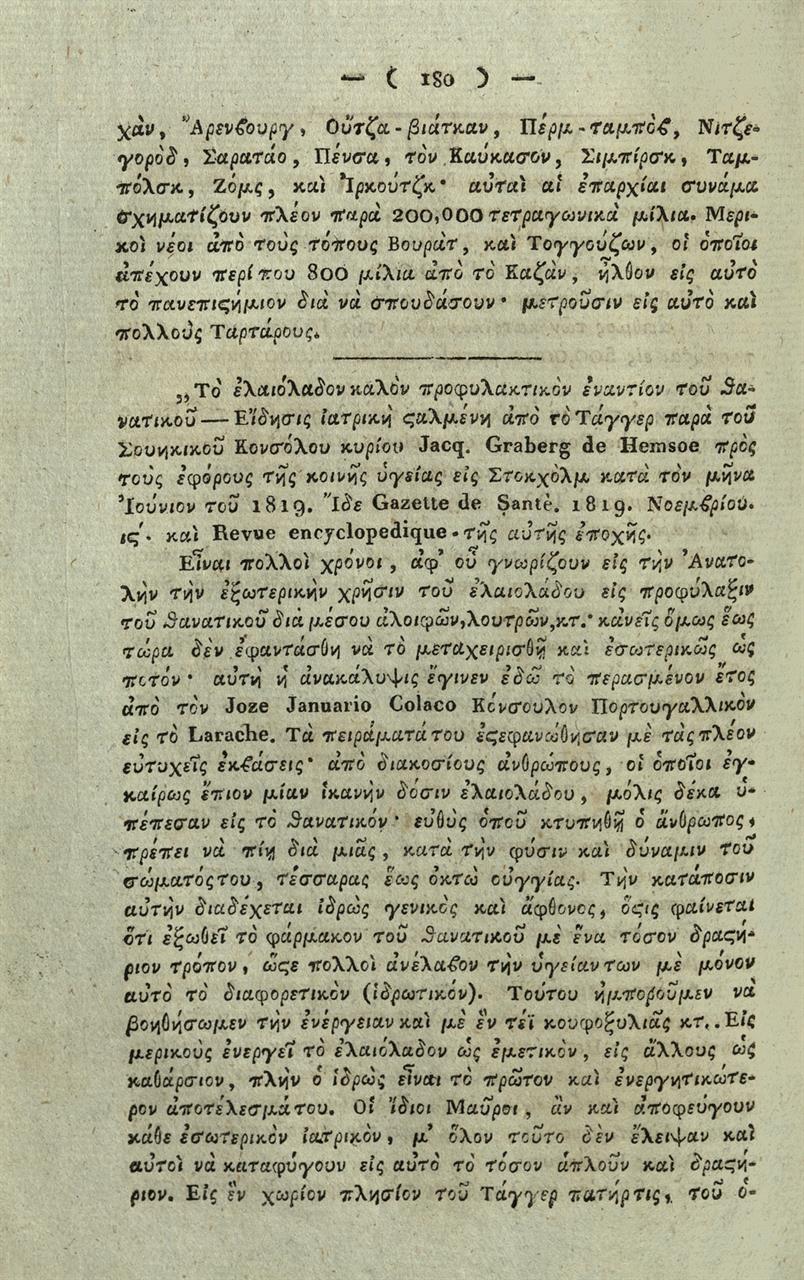 — ( 180 ) —
χὰν, Ἄρενβουργ, Οὔτζα-βιάτκαν, Πέρμ-ταμπὸβ, Νιτζε-
γορὸδ, Σαρατάο, Πένσα, τὸν Καύκασον, Σιμπίρσκ, Ταμ-
πόλσκ, Ζόμς, καὶ Ἰρκούτζκ· αὐταὶ αἱ ἐπαρχίαι συνάμα
σχηματίζουν πλέον παρὰ 200,000 τετραγωνικὰ μίλια. Μερι-
κοὶ νέοι ἀπὸ τοὺς τόπους Βουρὰτ, καὶ Τογγούζων, οἱ ὁποῖοι
ἀπέχουν περίπου 800 μίλια ἀπὸ τὸ Καζὰν, ἦλθον εἰς αὐτὸ
τὸ πανεπιϛήμιον διὰ νὰ σπουδάσουν· μετροῦσιν εἰς αὐτὸ καὶ
πολλοὺς Ταρτάρους.
„Τὸ ἐλαιόλαδον καλὸν προφυλακτικὸν ἐναντίον τοῦ θα-
νατικοῦ — Εἴδησις ἰατρικὴ ϛαλμένη ἀπὸ τὸ Τάγγερ παρὰ τοῦ
Σουηκικοῦ Κονσόλου κυρίου Jacq. Graberg de Hemsoe πρὸς
τοὺς ἐφόρους τῆς κοινῆς ὑγείας εἰς Στοκχὸλμ κατὰ τὸν μῆνα
Ἰούνιον τοῦ 1819. Ἴδε Gazette de Santè. 1819. Νοεμβρίου.
ιϛ΄. καὶ Revue encyclopedique. τῆς αὐτῆς ἐποχῆς.
Εἶναι πολλοὶ χρόνοι, ἀφ' οὗ γνωρίζουν εἰς τὴν Ἀνατο-
λὴν τὴν ἐξωτερικὴν χρῆσιν τοῦ ἐλαιολάδου εἰς προφύλαξιν
τοῦ θανατικοῦ διὰ μέσου ἀλοιφῶν, λουτρῶν, κτ.· κανεῖς ὅμως ἕως
τώρα δὲν ἐφαντάσθη νὰ τὸ μεταχειρισθῇ καὶ ἐσωτερικῶς ὡς
ποτόν· αὐτὴ ἡ ἀνακάλυψις ἔγινεν ἐδῶ τὸ περασμένον ἔτος
ἀπὸ τὸν Joze Januario Colaco Κόνσουλον Πορτουγαλλικὸν
εἰς τὸ Larache. Τὰ πειράματά του ἐϛεφανώθησαν μὲ τὰς πλέον
εὐτυχεῖς ἐκβάσεις· ἀπὸ διακοσίους ἀνθρώπους, οἱ ὁποῖοι ἐγ-
καίρως ἔπιον μίαν ἱκανὴν δόσιν ἐλαιολάδου, μόλις δέκα ὑ-
πέπεσαν εἰς τὸ θανατικόν· εὐθὺς ὁποῦ κτυπηθῇ ὁ ἄνθρωπος,
πρέπει νὰ πίῃ διὰ μιᾶς, κατὰ τὴν φύσιν καὶ δύναμιν τοῦ
σώματός του, τέσσαρας ἕως ὀκτὼ οὐγγίας. Τὴν κατάποσιν
αὐτὴν διαδέχεται ἱδρὼς γενικὸς καὶ ἄφθονος, ὅϛις φαίνεται
ὅτι ἐξωθεῖ τὸ φάρμακον τοῦ θανατικοῦ μὲ ἕνα τόσον δραϛή-
ριον τρόπον, ὥϛε πολλοὶ ἀνέλαβον τὴν ὑγείαν των μὲ μόνον
αὐτὸ τὸ διαφορετικὸν (ἱδρωτικόν). Τούτου ἠμποροῦμεν νὰ
βοηθήσωμεν τὴν ἐνέργειαν καὶ μὲ ἓν τέϊ κουφοξυλιᾶς κτ.. Εἰς
μερικοὺς ἐνεργεῖ τὸ ἐλαιόλαδον ὡς ἐμετικὸν, εἰς ἄλλους ὡς
καθάρσιον, πλὴν ὁ ἱδρὼς εἶναι τὸ πρῶτον καὶ ἐνεργητικώτε-
ρον ἀποτέλεσμάτου. Οἱ ἴδιοι Μαῦροι, ἂν καὶ ἀποφεύγουν
κάθε ἐσωτερικὸν ἰατρικὸν, μ' ὅλον τοῦτο δὲν ἔλειψαν καὶ
αὐτοὶ νὰ καταφύγουν εἰς αὐτὸ τὸ τόσον ἁπλοῦν καὶ δραϛή-
ριον. Εἰς ἓν χωρίον πλησίον τοῦ Τάγγερ πατήρτις, τοῦ ὁ-